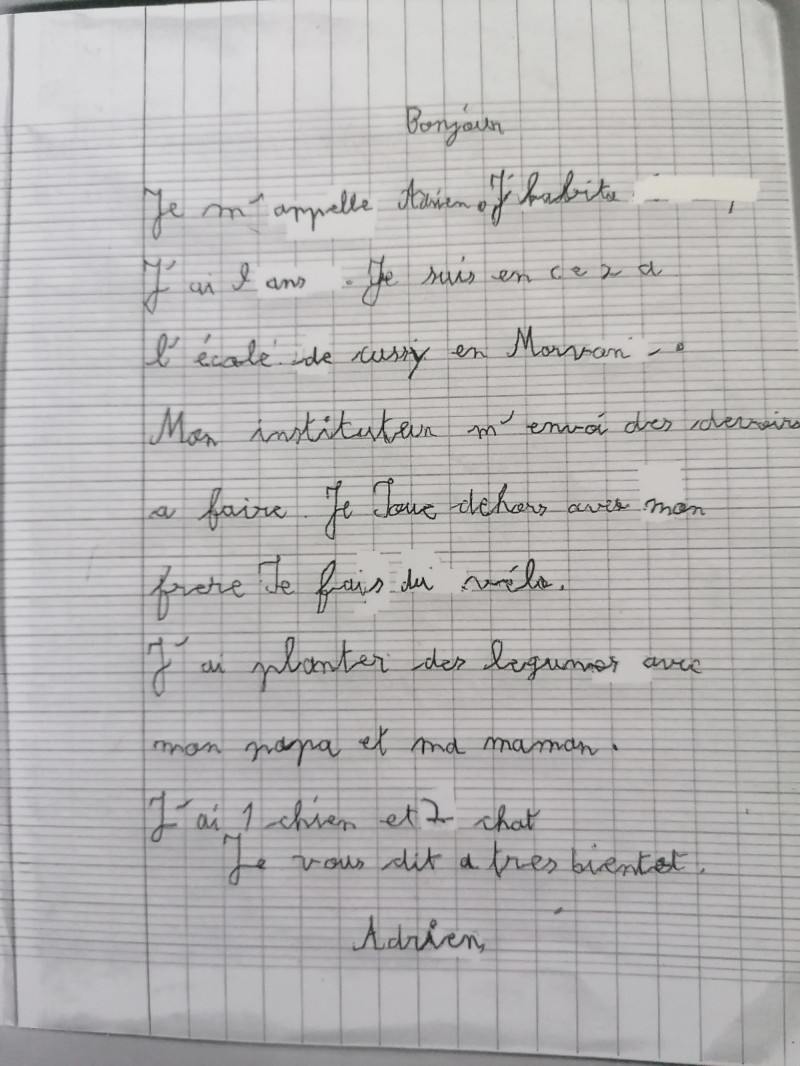 Bonjour
Je m'appelle Adrien. J'habite
J'ai ans. Je suis en ce2 a
l'école de cussy en Morvan.
Mon instituteur m'envoi des devoirs
a faire. Je Joue dehors avec mon
frere Je fais du vélo.
J'ai planter des legumes avec
mon papa et ma maman.
J'ai 1 chien et 2 chat
Je vous dit a tres bientot.
Adrien,